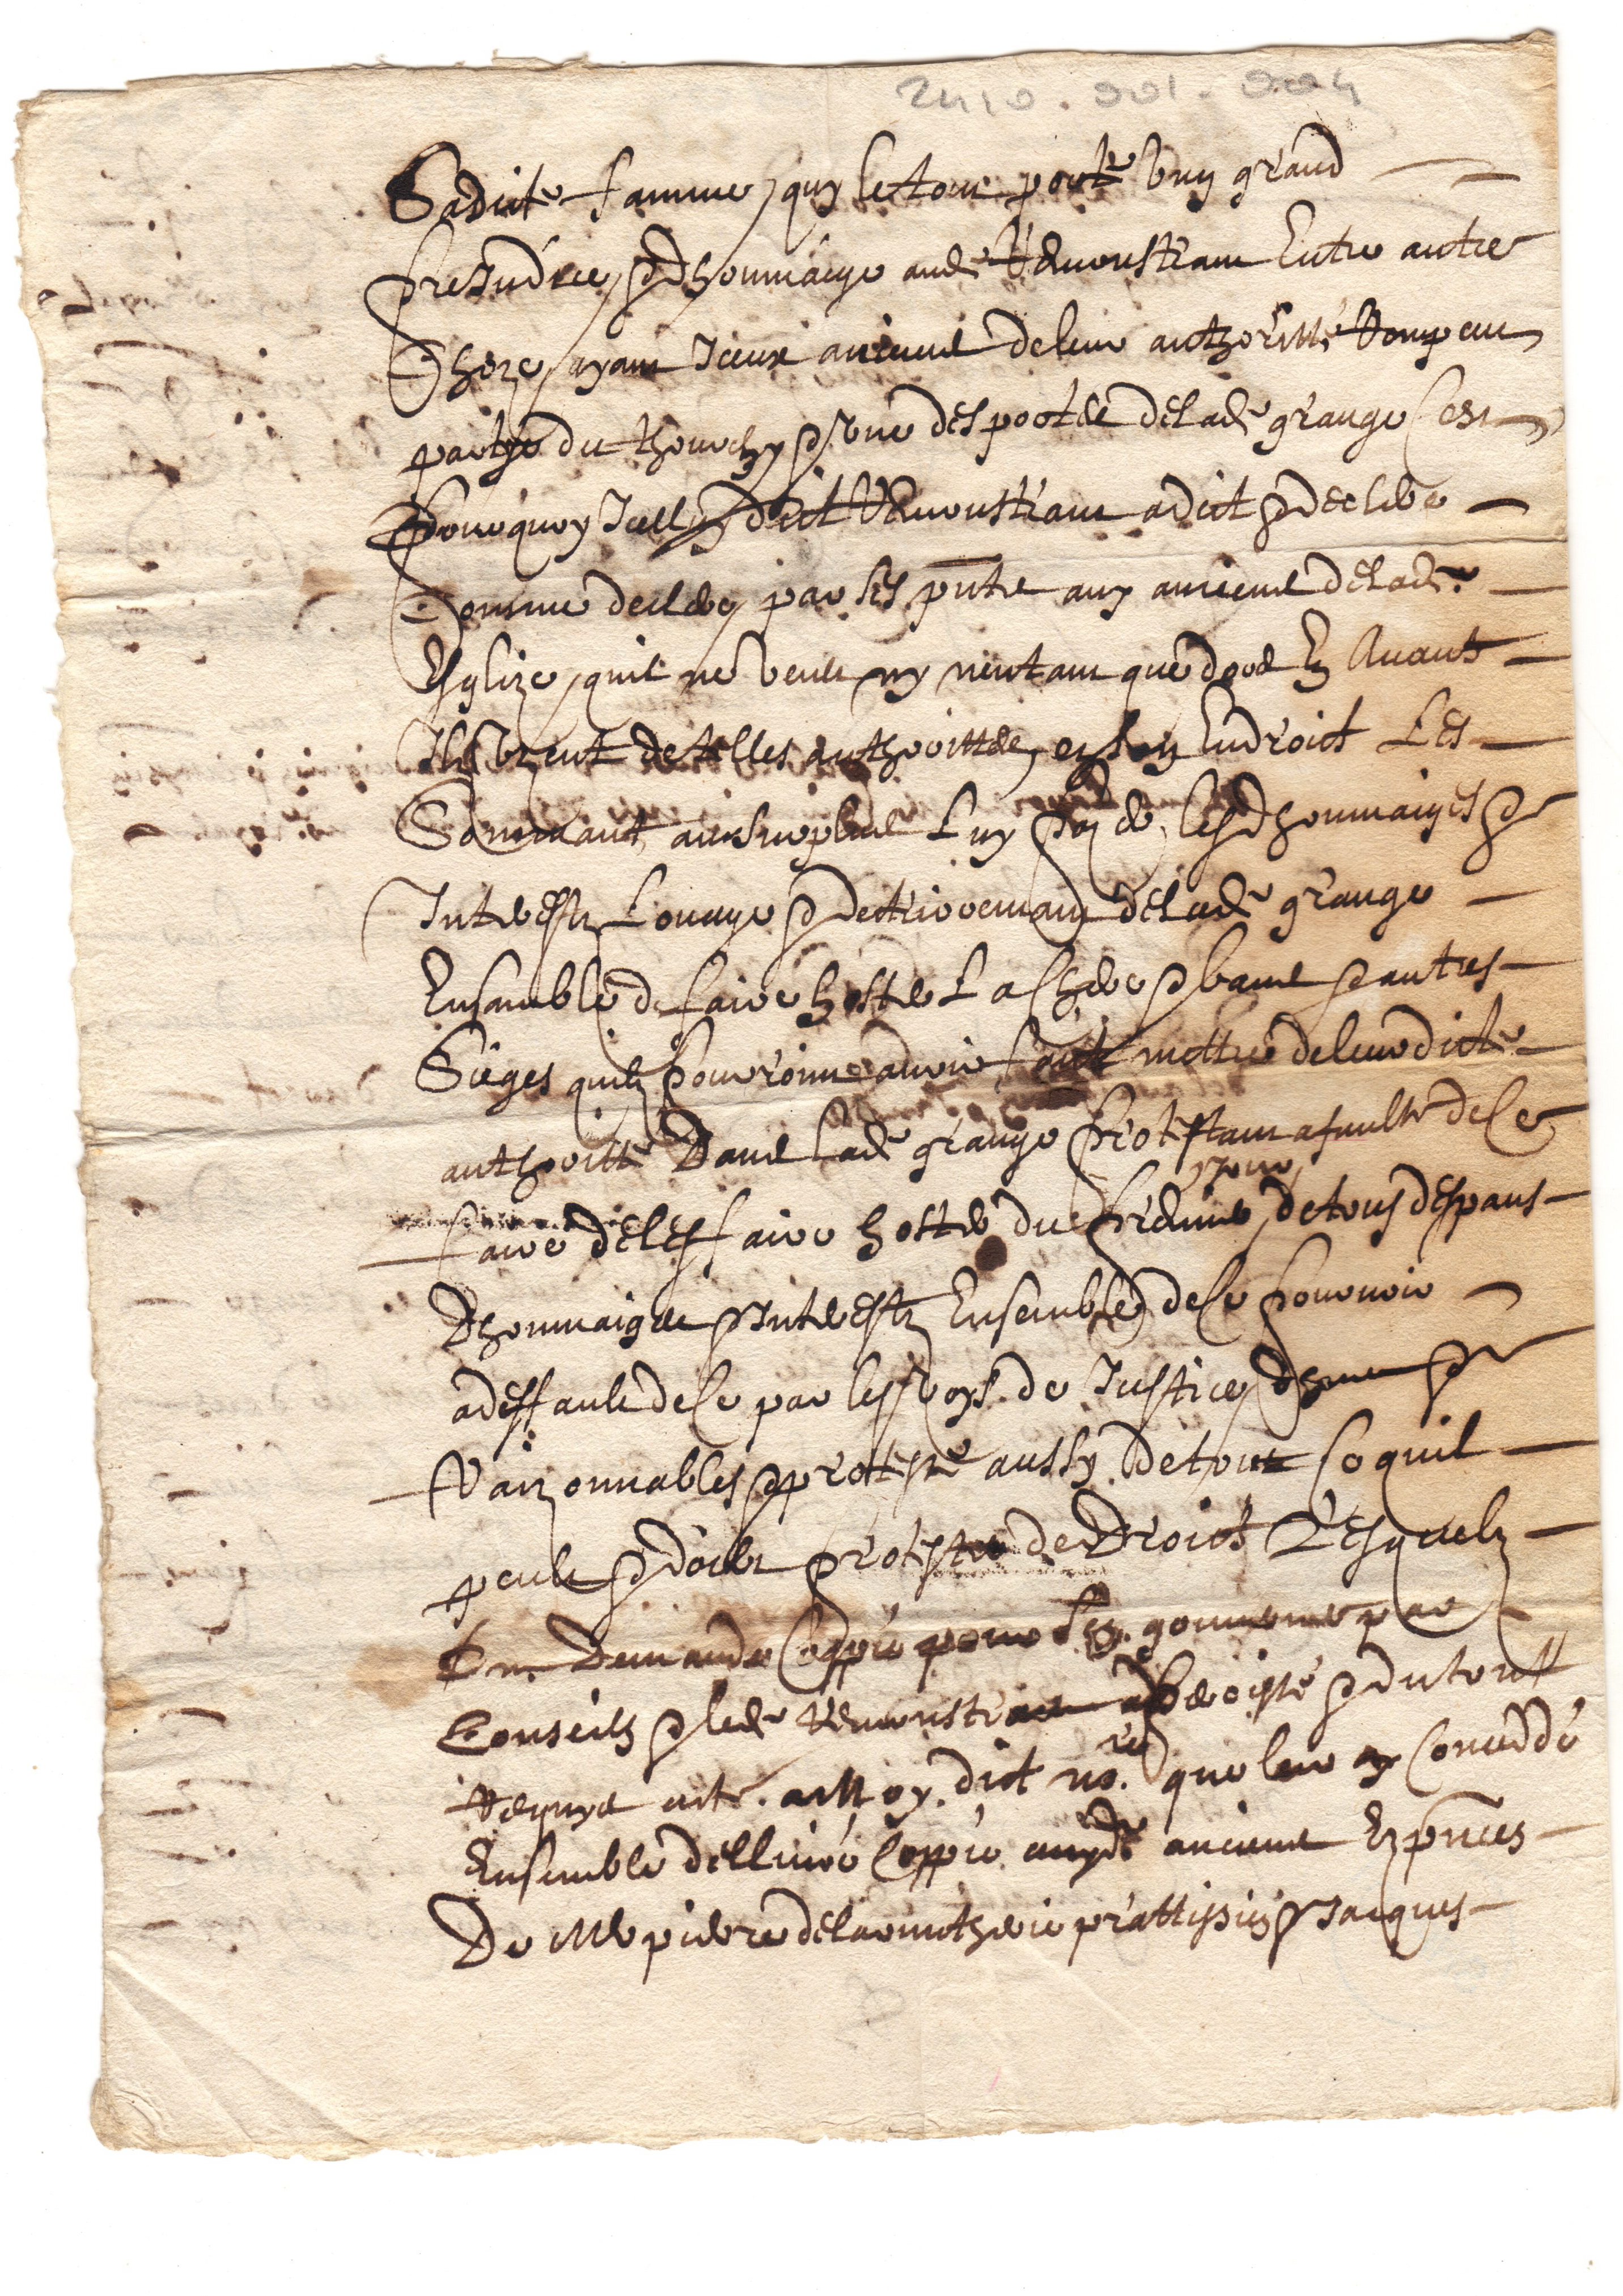 2410.001.004
Sadicte famme, quy le tout porte ung grand
preiudice & dhommaige aud. Remonstrant Entre autre
Choze, ayant Iceux anciens de leur authoritté Rompeu
partye du & une des portes de lade grange Cest
pourquoy Icelluy dict Remonstrant a dict & declere
Comme declere par ses pntes aux anciens de lade
Esglize, quil ne veult ny nentant que dores En Avant
Ils uzent de telles authorittes, en son Endroict Les
Sommant au surplus Luy payer les dhommaiges &
Intherestz Louage & de lade grange
Ensamble de faire hoster La chere & bancs & autres
Sieges quilz pouroint avoir faict mettre de leurdicte
authoritté Dans lade grange Protestant a faulte de Ce
faire de les faire hoster du premier jour, de tous despans
Dhommaiges & Intherestz Ensemble de ce pourvoir
a deffault de Ce par les voyes de Justice dheues &
Raizonnables & proteste aussy De tout Ce quil
peult & doibt protester de Droict Lesquelz
Demande Coppie pour Ses gouverner par
Conseilz & led. Remonstrant a & du tout
Requis acte. a Moy. dict no.re que leur ay Concéddé
Ensemble dellivré Coppie auxd. anciens Ez pnces
De Me pierre delarmitherie pratissien & Jacques